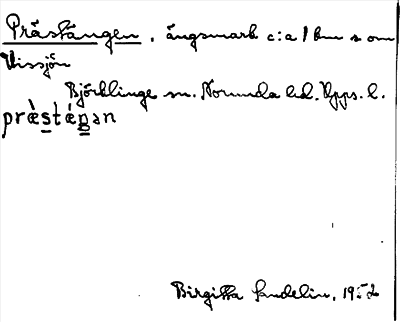 Prästängen, ängsmark c:a 1 km s om
Vissjön
Björklinge sn. Norunda hd. Upps. l.
præ̀stǽŋən
Birgitta Sandelin, 1952